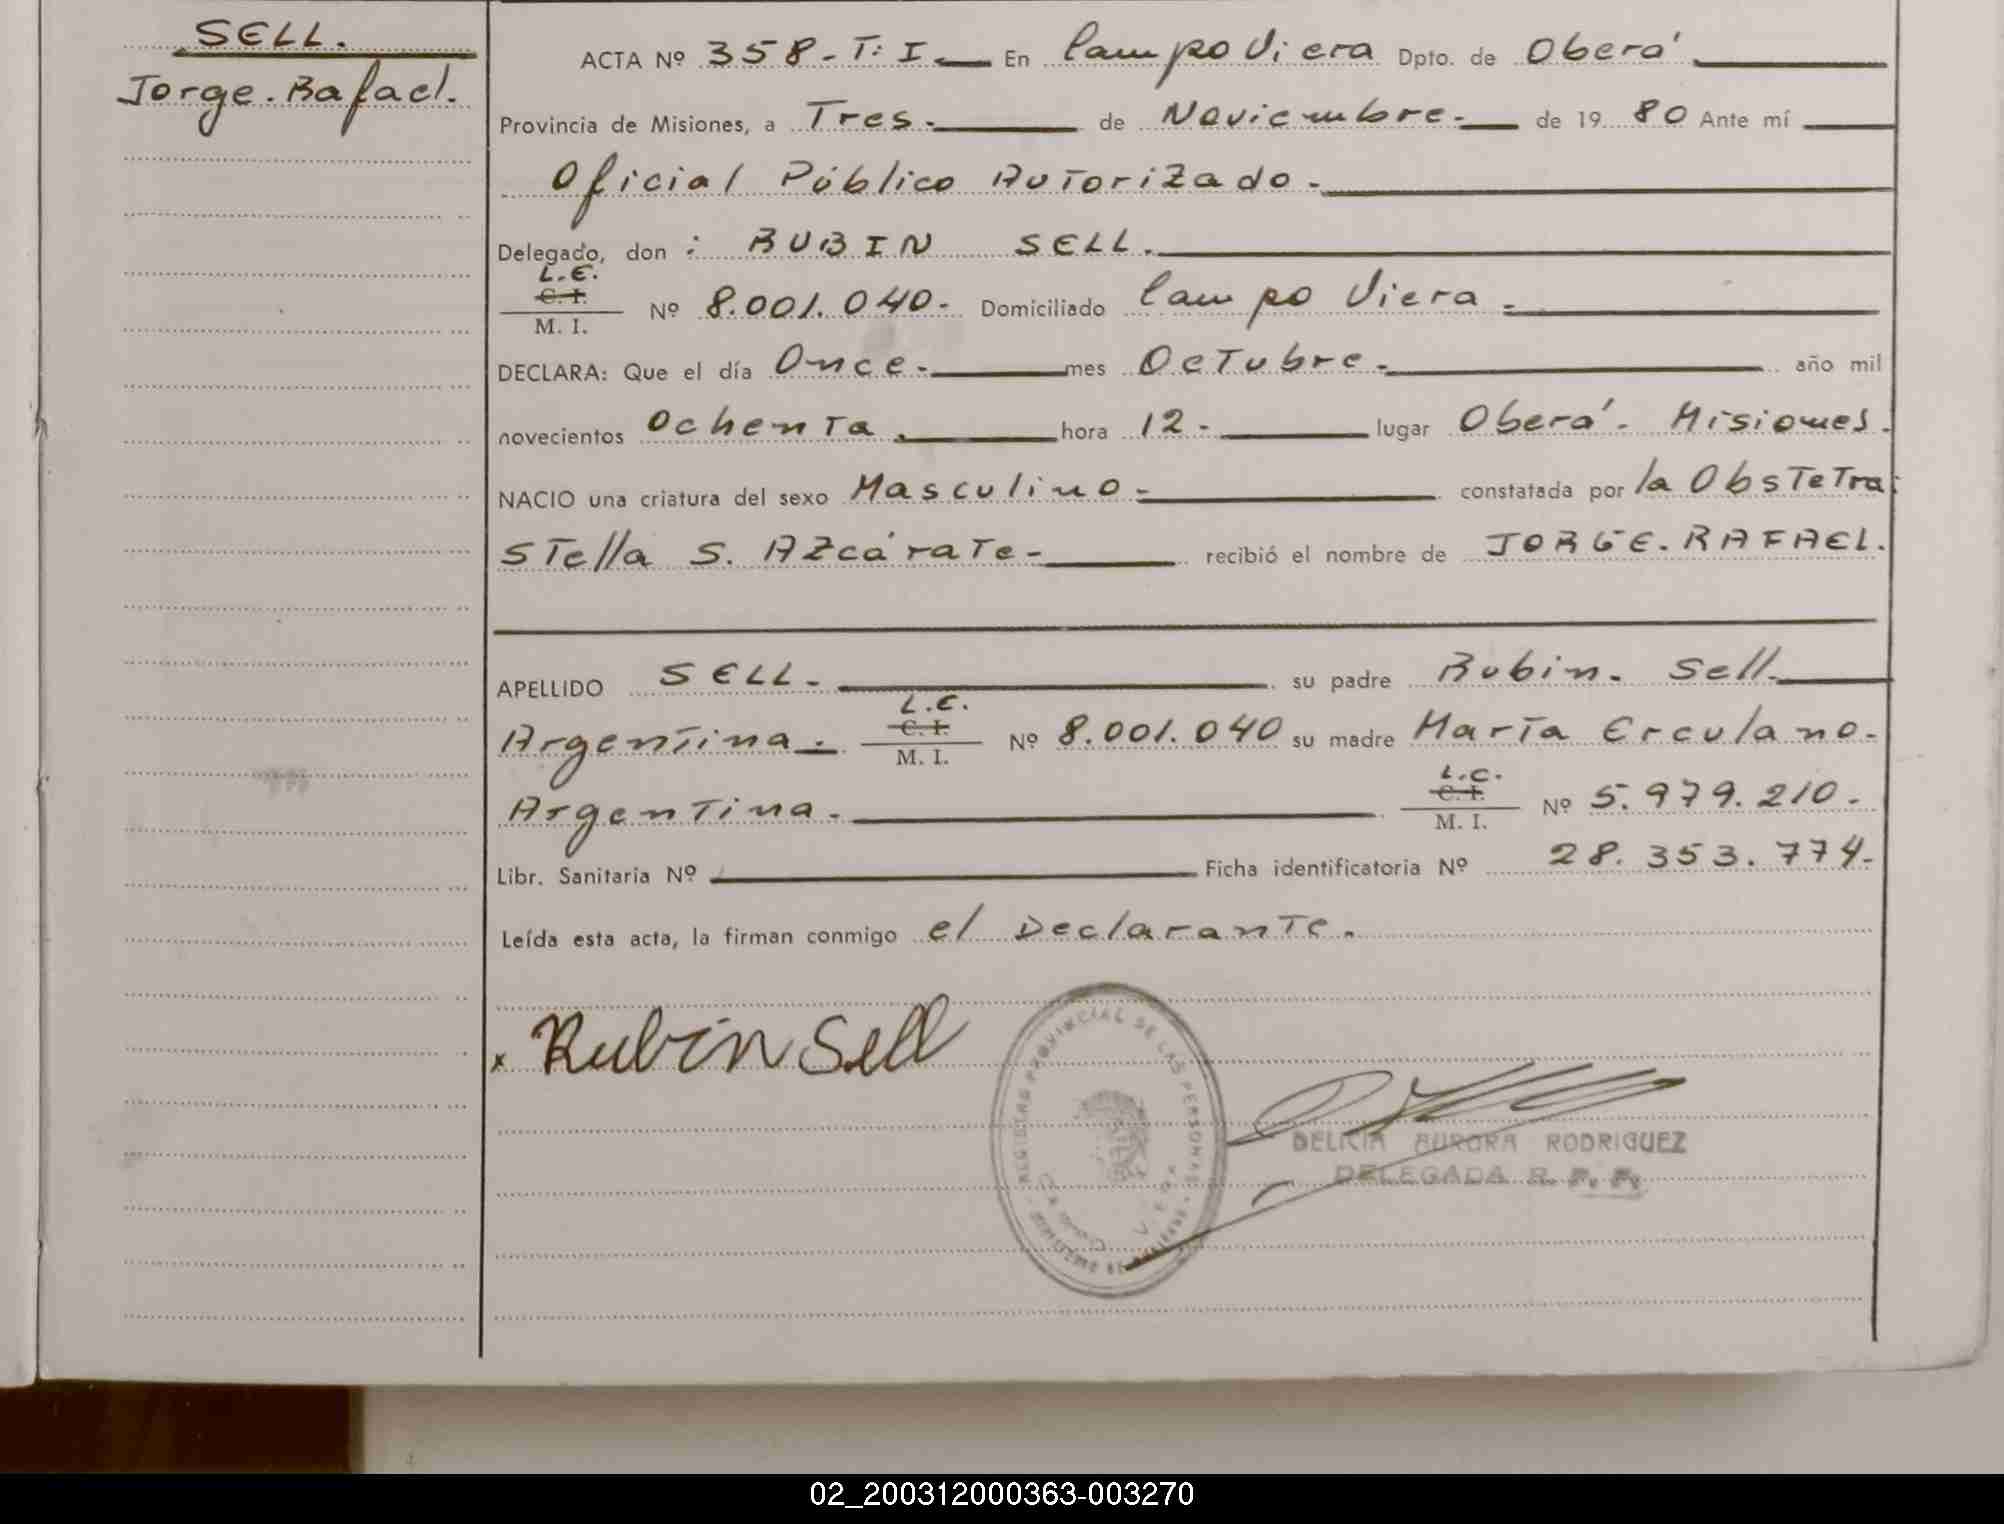 SELL.
Jorge. Rafael.
ACTA Nº 358 - T: I. En Campo Viera Dpto. de Oberá
Provincia de Misiones, a Tres. de Noviembre. de 19 80 Ante mí
Oficial Público Autorizado.
Delegado, don : RUBIN SELL.
L.E.
C. I.
M. I. Nº 8.001.040- Domiciliado Campo Viera.
DECLARA: Que el día Once. mes Octubre. año mil
novecientos Ochenta. hora 12- lugar Oberá. Misiones.
NACIO una criatura del sexo Masculino- constatada por la Obstetra:
Stella S. Azcárate- recibió el nombre de JORGE. RAFAEL.
APELLIDO SELL. su padre Rubin. Sell.
Argentina. L.E. C. I. M. I. Nº 8.001.040 su madre María Erculano.
Argentina. L.C. C. I. M. I. Nº 5.979.210.
Libr. Sanitaria Nº Ficha identificatoria Nº 28.353.774.
Leída esta acta, la firman conmigo el Declarante.
x Rubin Sell
REGISTRO PROVINCIAL DE LAS PERSONAS
MINISTERIO DE GOBIERNO
DELICIA AURORA RODRIGUEZ
DELEGADA R. P. P.
02_200312000363-003270